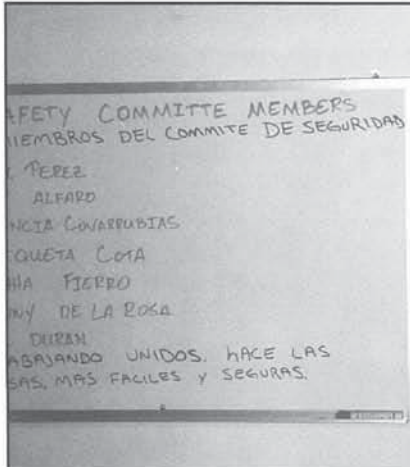 AFETY COMMITTE MEMBERS
IEMBROS DEL COMMITE DE SEGURIDAD
PEREZ
ALFARO
NCIA COVARRUBIAS
QUETA COTA
HA FIERRO
NY DE LA ROSA
DURAN
ABAJANDO UNIDOS. HACE LAS
SAS, MAS FACILES Y SEGURAS.